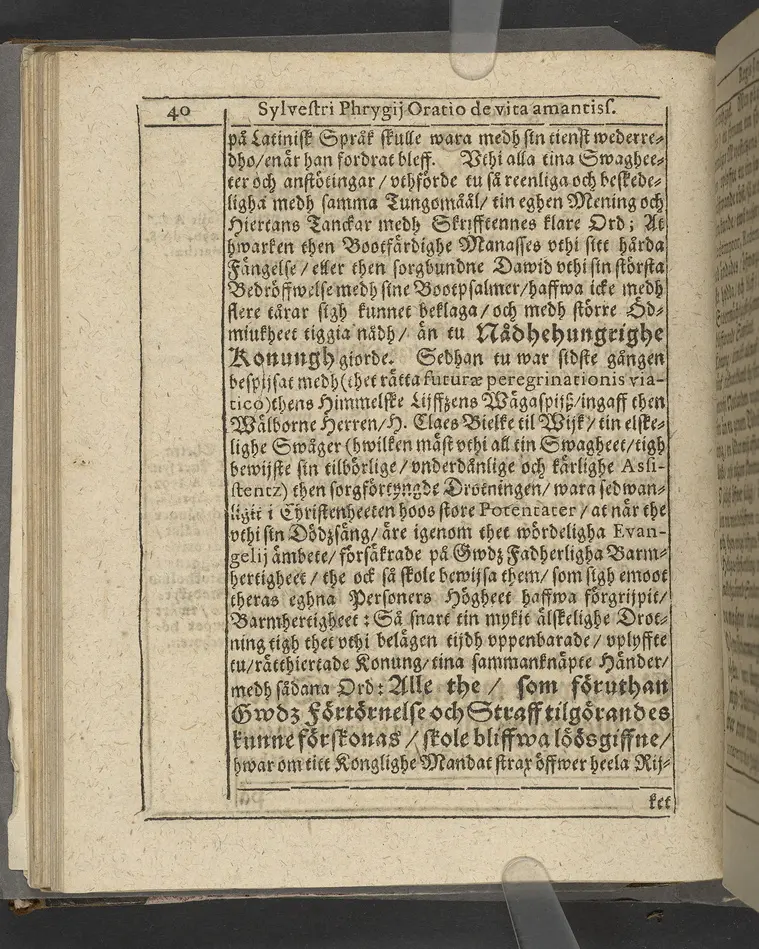 40 Sylvestri Phrygij Oratio de vita amantiss.
på Latinisk Språk skulle wara medh sin tienst wederre-
dho/enär han fordrat bleff. Vthi alla tina Swaghee-
ter och anstötingar/vthförde tu så reenliga och beskede-
ligha medh samma Tungomåål/tin eghen Mening och
Hiertans Tanckar medh Skrifftennes klare Ord; At
hwarken then Bootfärdighe Manasses vthi sitt hårda
Fängelse/eller then sorgbundne Dawid vthi sin största
Bedröffwelse medh sine Bootpsalmer/haffwa icke medh
flere tårar sigh kunnet beklaga/och medh större Öd-
miukheet tiggia nådh/än tu Nådhehungrighe
Konungh giorde. Sedhan tu war sidste gången
bespijsat medh (thet rätta futuræ peregrinationis via-
tico) thens Himmelske Lijffzens Wägaspijß/ingaff then
Wälborne Herren/H. Claes Bielke til Wijk/tin elske-
lighe Swåger (hwilken mäst vthi all tin Swagheet/tigh
bewijste sin tilbörlige/vnderdånlige och kärlighe Assi-
stentz) then sorgförtyngde Drotningen/wara sedwan-
ligit i Christenheeten hoos store Potentater/at när the
vthi sin Dödzsäng/äre igenom thet wördeligha Evan-
gelij ämbete/försäkrade på Gwdz Fadherligha Barm-
hertigheet/the ock så skole bewijsa them/som sigh emoot
theras eghna Personers Högheet haffwa förgrijpit/
Barmhertigheet: Så snart tin mykit älskelighe Drot-
ning tigh thet vthi belägen tijdh vppenbarade/vplyffte
tu/rätthiertade Konung/tina sammanknäpte Händer/
medh sådana Ord: Alle the/som föruthan
Gwdz Förtörnelse och Straff tilgörandes
kunne förskonas/skole bliffwa löösgiffne/
hwar om titt Konglighe Mandat strax öffwer heela Rij-
ket